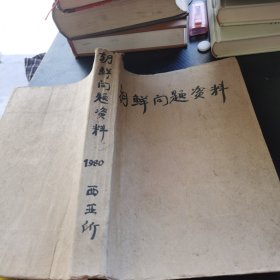 朝鲜问题资料
1980
西亚所
朝鲜问题资料